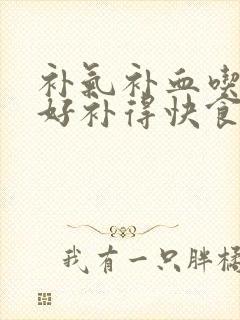 补气补血喫
好补得快食
我有一只胖橘